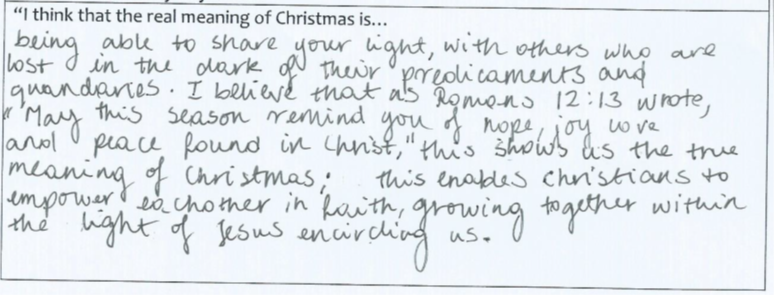 "I think that the real meaning of Christmas is...
being able to share your light, with others who are
lost in the dark of their predicaments and
quandaries. I believe that as Romans 12:13 wrote,
"May this season remind you of hope, joy love
and peace found in Christ," this shows us the true
meaning of Christmas; this enables Christians to
empower eachother in faith, growing together within
the light of Jesus encircling us.